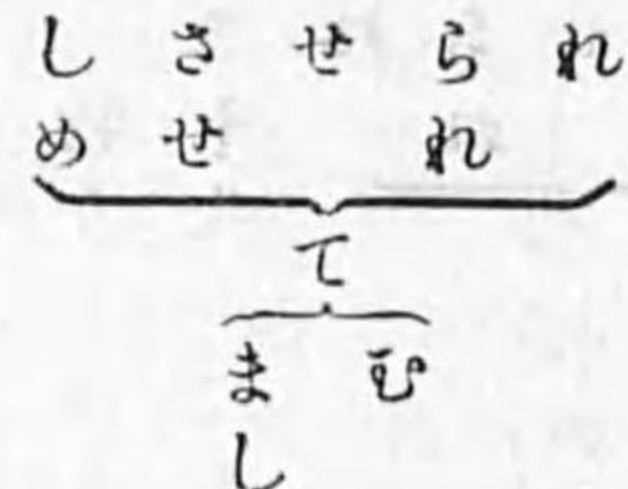 れ
られ
せ
させ
しめ
て
む
まし